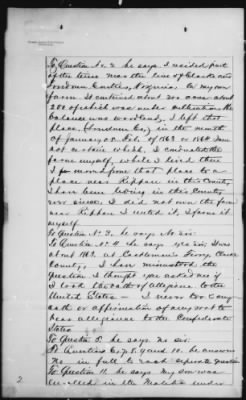 To Question Nr. 2 he says I resided part
of the time near the line of Clarke and
Loudoun Counties, Virginia. to my own
farm. It contained about 300 acres about
200 of which was under cultivation, the
balance was woodland, I left that
place, Loudoun Co, in the month
of January or Feb. of 1863 or 1864 am
not certain which, I cultivated the
farm myself, while I lived there
I moved from that place to a
place near Rippon in this County,
I have been living in this County
ever since. I did not own the farm
near Rippon I rented it, & farmed it
myself.
To Question No 3. he says No sir.
To Question No. 4. he says yes sir, I was
about 1863. at Castleman's Ferry, Clarke
County, I have misunderstood the
question I thought you asked me if
I took the oath of allegiance to the
United States — I never took any
oath or affirmation of any sort to
bear allegiance to the Confederate
States
To Question 5. he says no sir.
To Questions 6, 7, 8, 9 and 10. he answers
No in full to each separate question
To Question 11. he says My son was
enrolled in the Militia under
2.